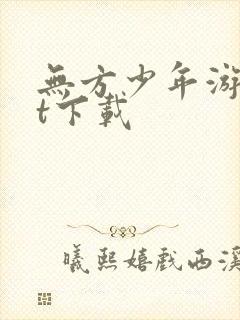 無方少年游
t下載
曦熙嬉戲西溪